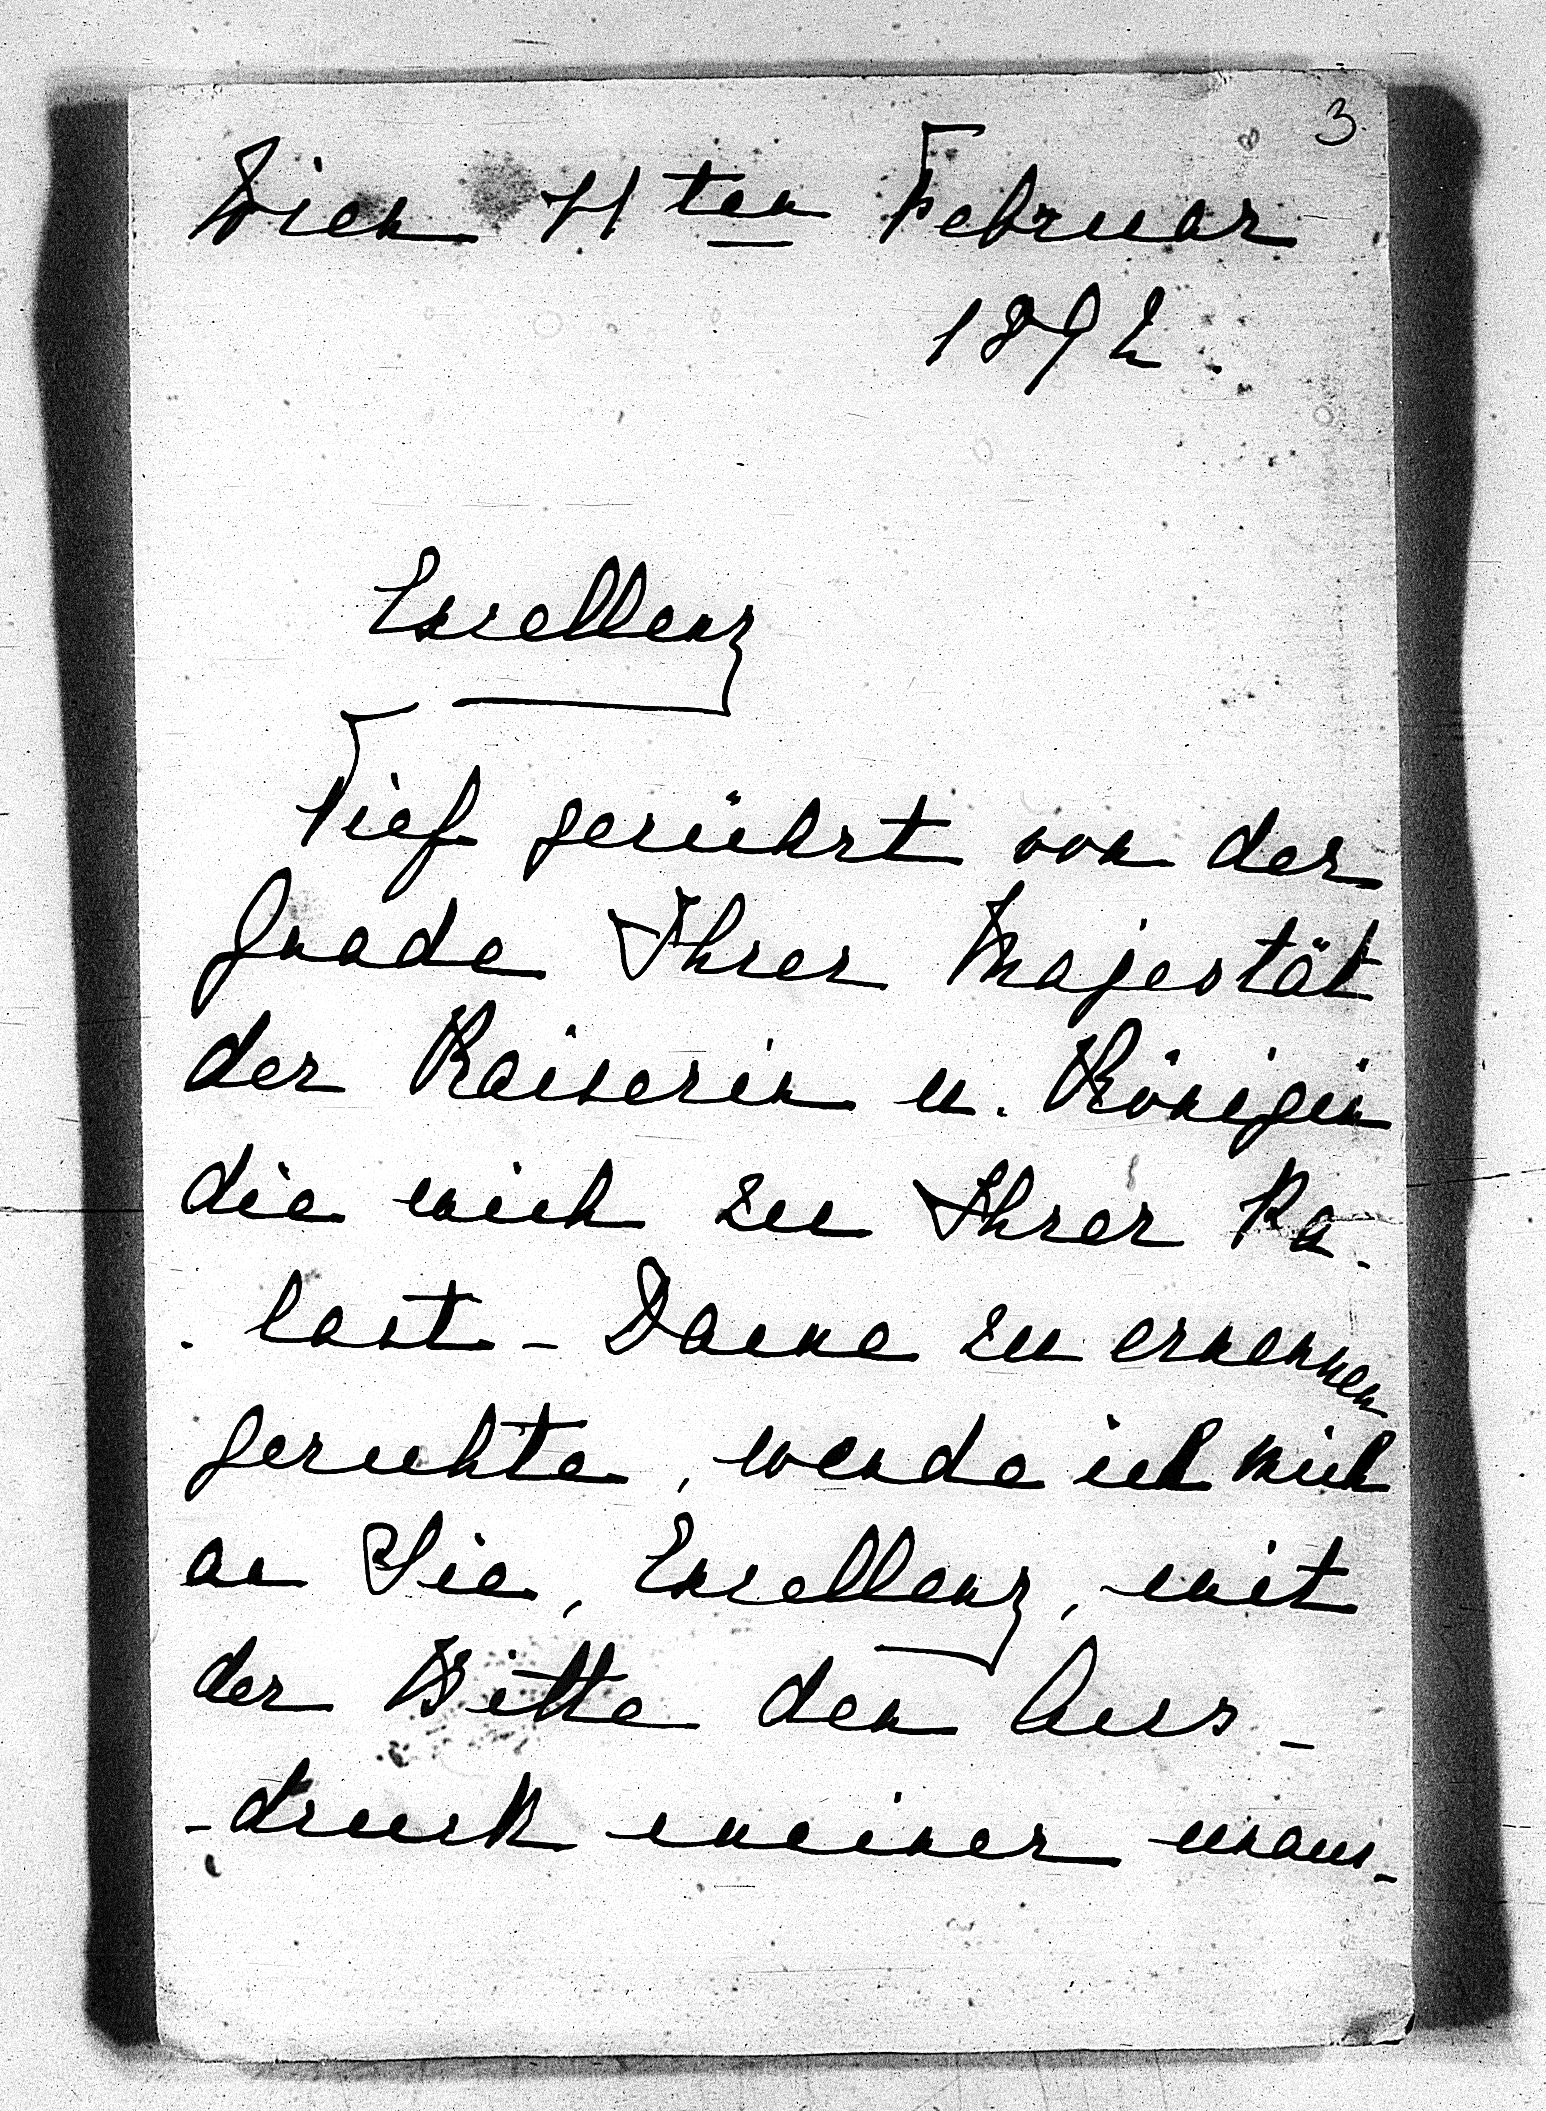 3
Wien 11ten Februar
1892.
Excellenz
Tief gerührt von der
Gnade Ihrer Majestät
der Kaiserin u. Königin
die mich zu Ihrer Pa-
-last-Dame zu ernennen
geruhte, wende ich mich
an Sie, Excellenz, mit
der Bitte den Aus-
-druck meiner unaus-